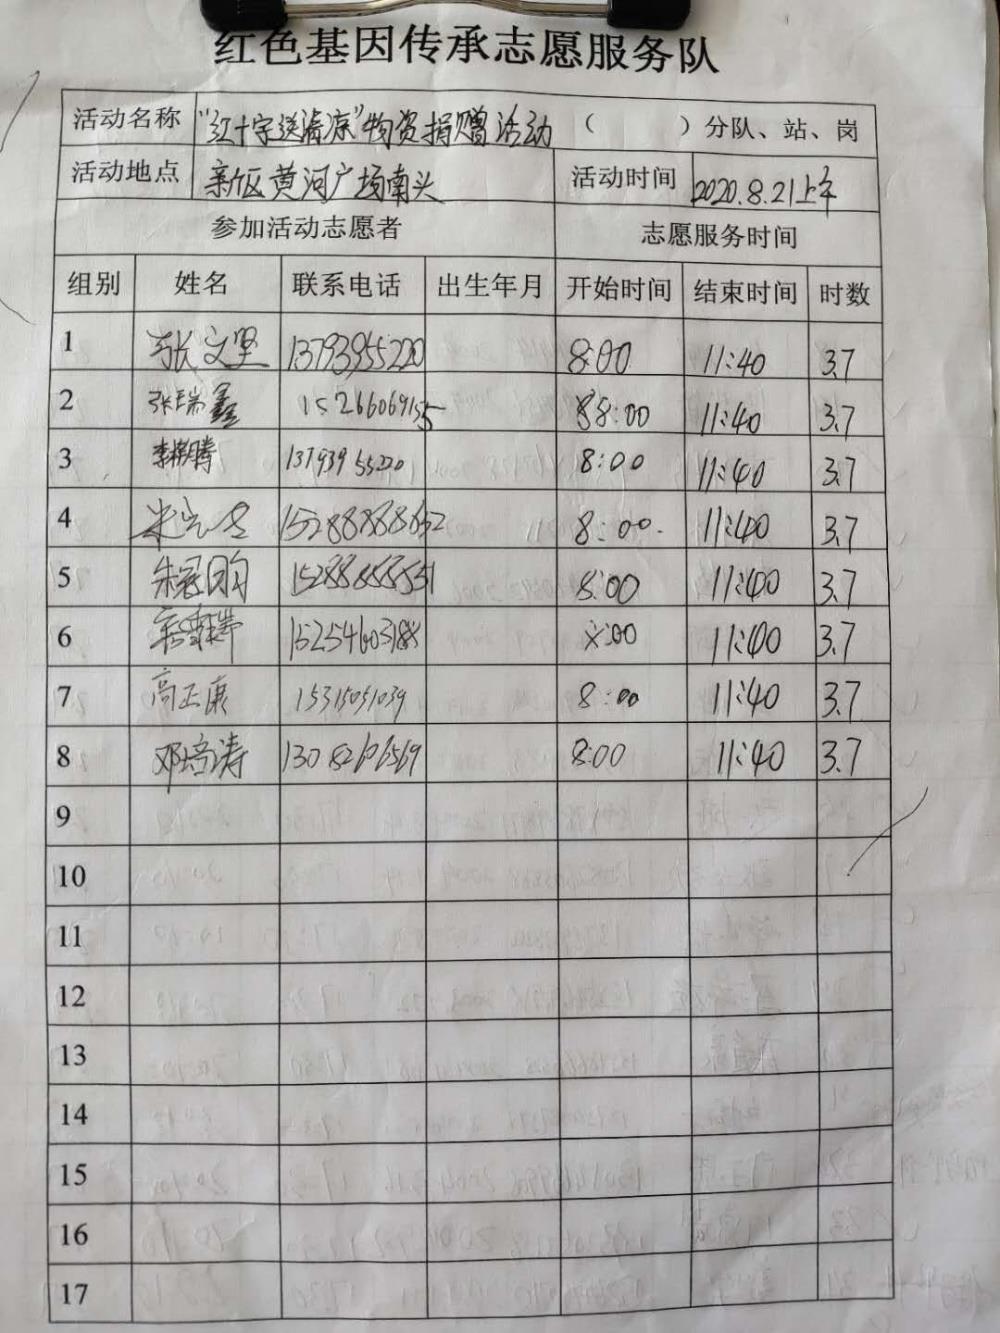 红色基因传承志愿服务队
活动名称 “红十字送清凉”物资捐赠活动 （ ）分队、站、岗
活动地点 新区黄河广场南头 活动时间 2020.8.21上午
参加活动志愿者 志愿服务时间
组别 姓名 联系电话 出生年月 开始时间 结束时间 时数
1 张文坚 13793955220 8:00 11:40 3.7
2 张瑞鑫 15266069155 8:00 11:40 3.7
3 13793955220 8:00 11:40 3.7
4 8:00 11:40 3.7
5 8:00 11:40 3.7
6 8:00 11:40 3.7
7 高正康 15315051039 8:00 11:40 3.7
8 邓培涛 8:00 11:40 3.7
9
10
11
12
13
14
15
16
17